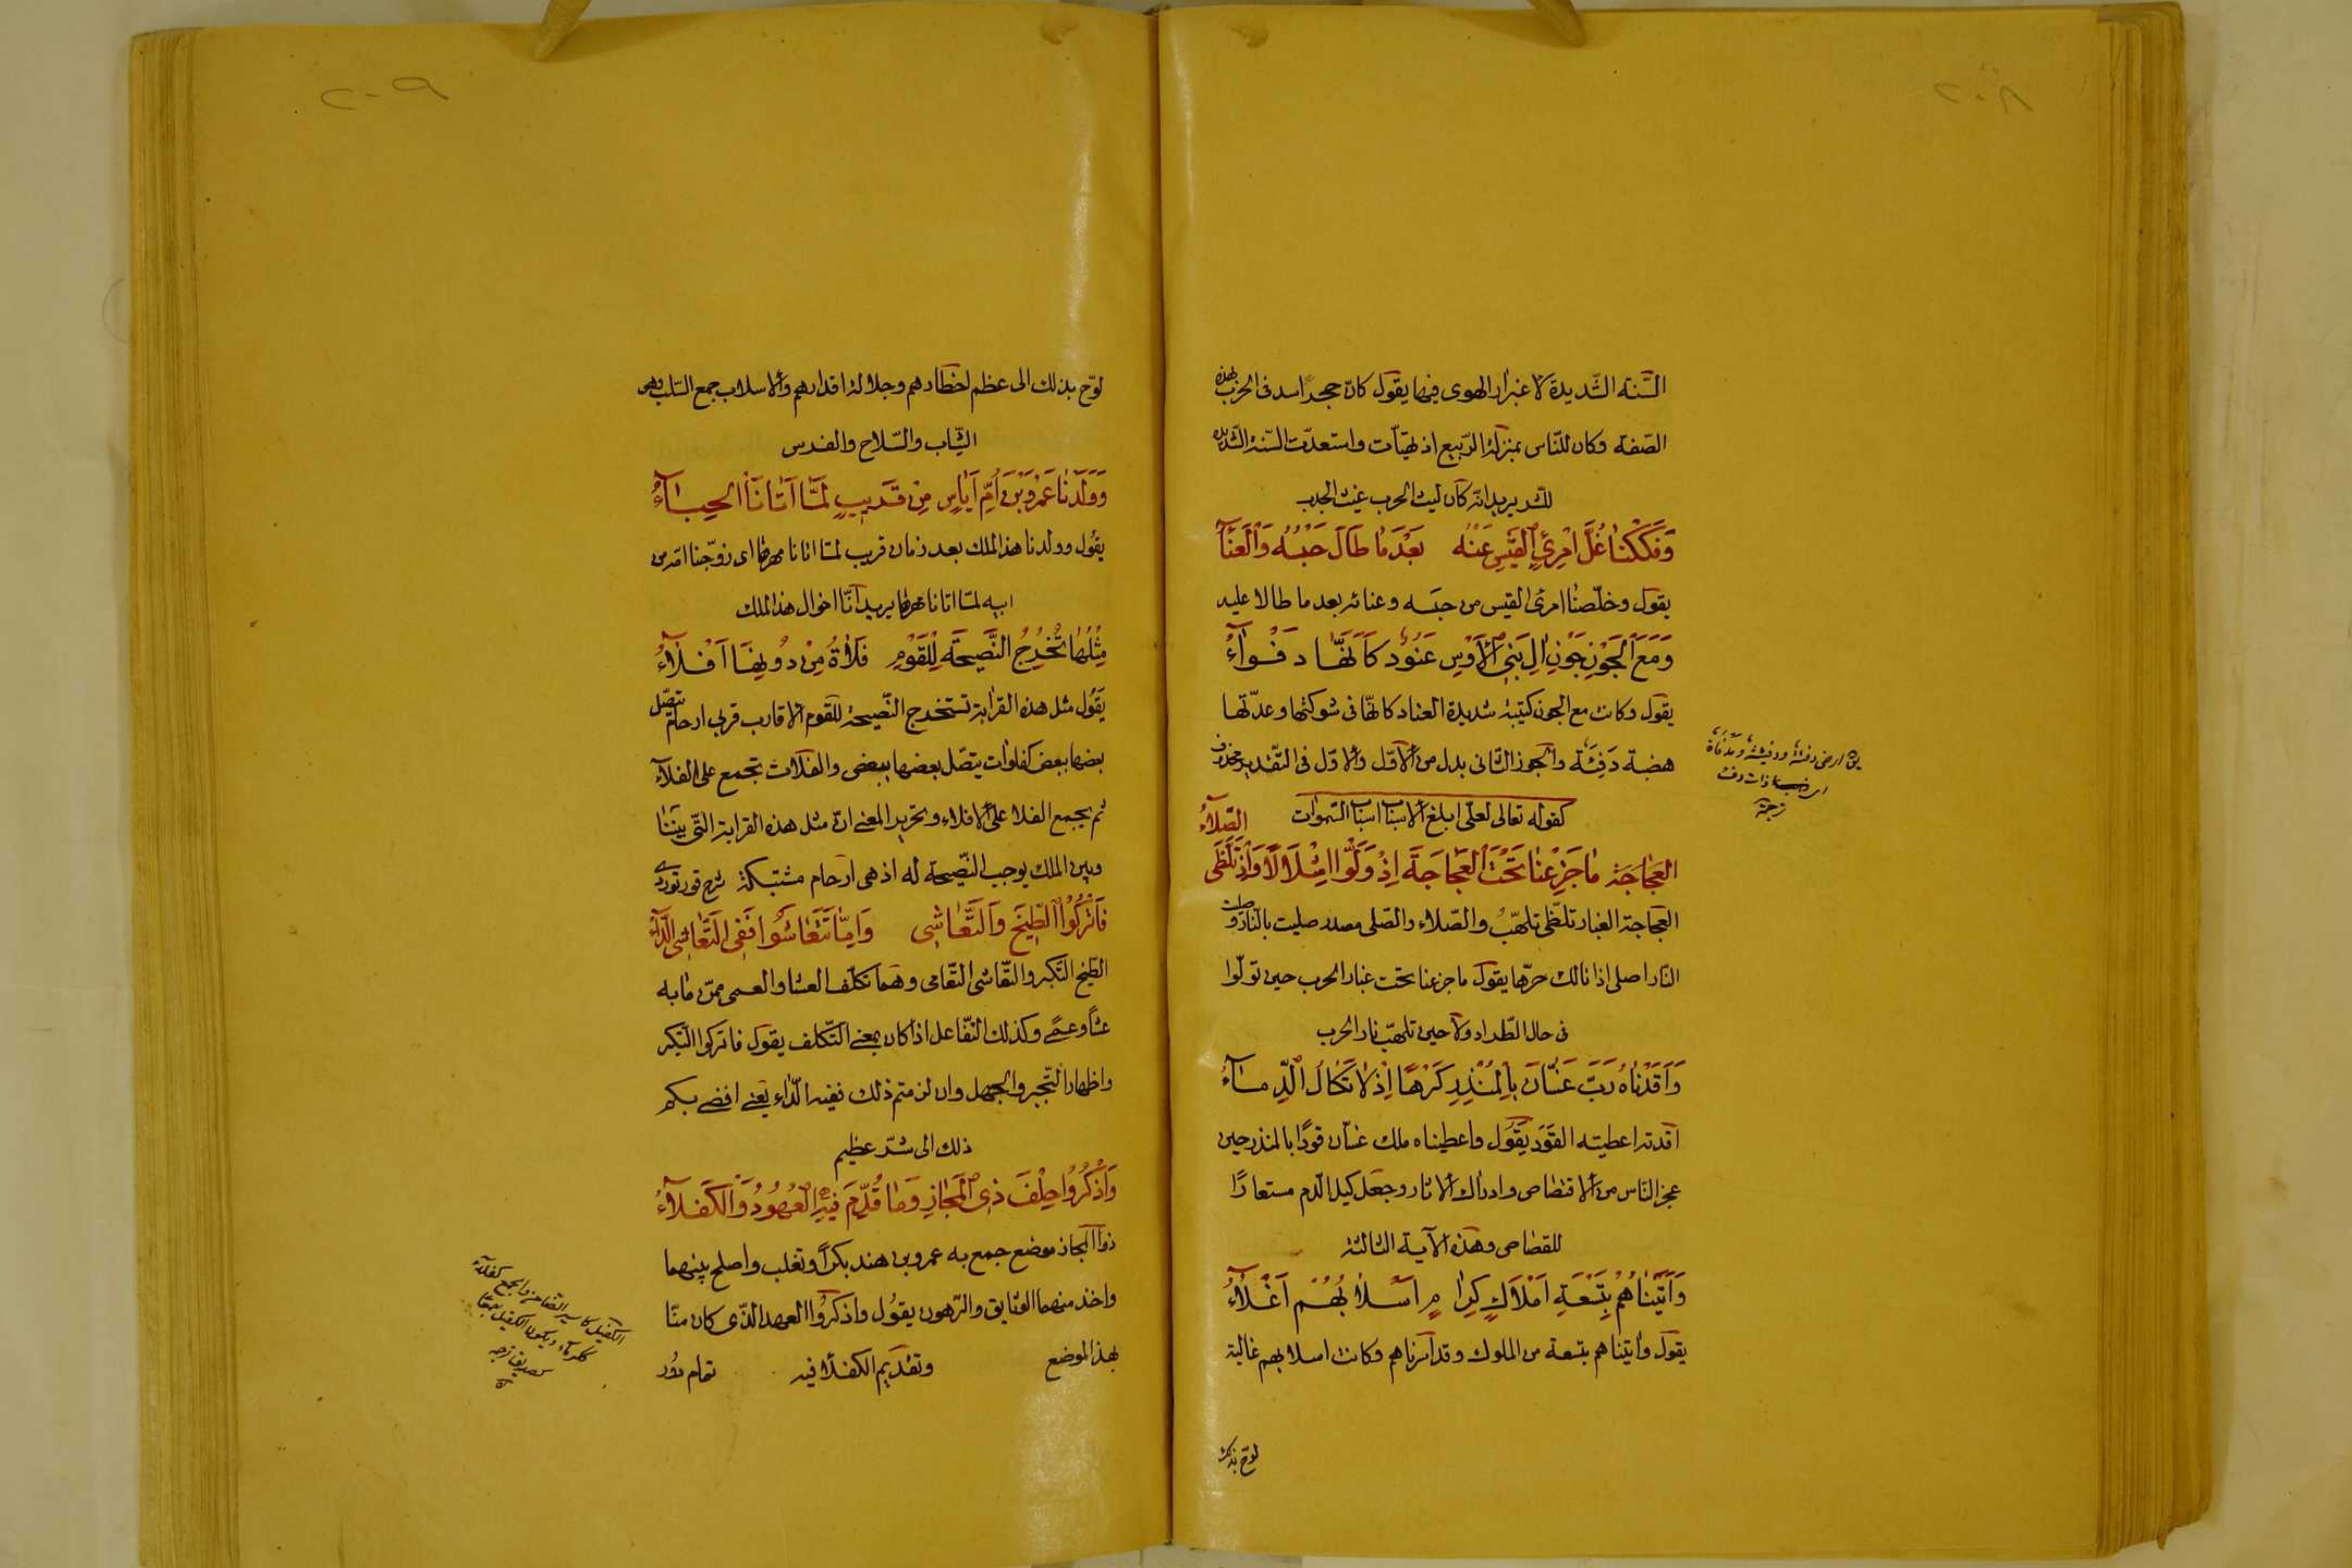 ٢٠٨
السّنة الشّديدة لاغبرار الهوى فيها يقول كان حجر اسد فى الحرب بهذه
الصّفة وكان للنّاس بمنزلة الرّبيع اذ تهيّأت واستعدّت السّنة الشّديدة
للشّر يريد انّه كان ليث الحرب غيث الجدب
وَفَكَكْنَا غُلَّ امْرِئِ الْقَيْسِ عَنْهُ بَعْدَ مَا طَالَ حَبْسُهُ وَالْعَنَآءُ
يقول وخلّصنا امرئ القيس من حبسه وعنائه بعد ما طالا عليه
وَمَعَ الْجَوْنِ جَوْنِ اٰلِ بَنِى الْاَوْسِ عَنُودٌ كَاَنَّهَا دَفْوَاءُ
يقول وكانت مع الجون كتيبة شديدة العناد كانّها فى شوكتها وعدّتها
هضبة دَفِئَة والجون الثانى بدل من الاوّل والاوّل فى التّقدير محذوف
كقوله تعالى لعلّى ابلغ الاسباب اسباب السّموات
الصِّلَآءُ
العَجَاجَة مَا جَزِعْنَا تَحْتَ الْعَجَاجَةِ اِذْ وَلَّوْا شِلَالًا وَاِذْ تَلَظَّى
العجاجة الغبار تلظّى تلهّبُ والصّلاء والصّلى مصدر صليت بالنّار و صليت
النّار اصلى اذا نالك حرّها يقول ما جزعنا تحت غبار الحرب حين تولّوا
فى حال الطّراد ولا حين تلهّب نار الحرب
وَاَقَدْنَاهُ رَبَّ غَسَّانَ بِالْمُنْذِرِ كَرْهًا اِذْ لَا تُكَالُ الدِّمَآءُ
اقدته اعطيته القَوَد يَقُول واعطيناه ملك غسّان قودًا بالمنذر حين
عجز النّاس من الاقتصاص وادراك الاثار وجعل كيل الدّم مستعارًا
للقصاص وهذه الآية الثالثة
وَاَتَيْنَاهُمْ بِتِسْعَةِ اَمْلَاكٍ كِرَامٍ اَسْلَابُهُمْ اَغْلَاءُ
يقول واتيناهم بتسعة من الملوك وقد اسرناهم وكانت اسلابهم غالية
لوّح بذلك
يق ارض دفئة ودفيئة ومدفأة
ذات دفء
ترجمة
٢٠٩
لوّح بذلك الى عظم اخطارهم وجلالة اقدارهم والاسلاب جمع السّلب وهى
الثّياب والسّلاح والفرس
وَوَلَدْنَا عَمْرَو بْنَ اُمِّ اَيَاسٍ مِنْ قَرِيبٍ لَمَّا اَتَانَا الْحِبَاءُ
يقول وولدنا هذا الملك بعد زمان قريب لمّا اتانا مهرها اى زوّجنا امّه من
ابيه لمّا اتانا مهرها يريد انّا اخوال هذا الملك
مِثْلُهَا تُخْرِجُ النَّصِيحَةَ لِلْقَوْمِ فَلَاةٌ مِنْ دُونِهَا اَفْلَآءُ
يَقُول مثل هذه القرابة تستخرج النّصيحة للقوم الاقارب قربى ارحام يتصّل
بعضها ببعض كفلوات يتصّل بعضها ببعض والفلاة تجمع على الفلا
ثم يجمع الفلا على الافلاء وتحرير المعنى انّ مثل هذه القرابة التّى بيننا
وبين الملك يوجب النّصيحة له اذ هى ارحام مشتبكة
فَاتْرُكُوا الطِّيخَ وَالتَّعَاشِى وَاِمَّا تَتَعَاشَوْا فَفِى التَّعَاشِى الدَّاءُ
الطّيخ التّكبر والتّعاشى التّعامى وهما تكلّف العشا والعمى ممّن ما به
عشًا وعمى وكذلك التّفاعل اذا كان بمعنى التّكلف يقول فاتركوا التّكبر
واظهار التّجبر والجهل وان لزمتم ذلك ففيه الدّاء يَعنى افضى بكم
ذلك الى شرّ عظيم
وَاذْكُرُوا حِلْفَ ذِى الْمَجَازِ وَمَا قُدِّمَ فِيهِ الْعُهُودُ وَالْكُفَلَآءُ
ذوا المجاز موضع جمع به عمرو بن هند بكراً وتغلب واصلح بينهما
واخذ منهما الوثايق والرّهون يقول واذكروا العهد الّذى كان منّا
بهذا الموضع وتقديم الكفلا فيه
الكفيل الضّامن والجمع كفلآء
ويكون الكفيل
ترجمه